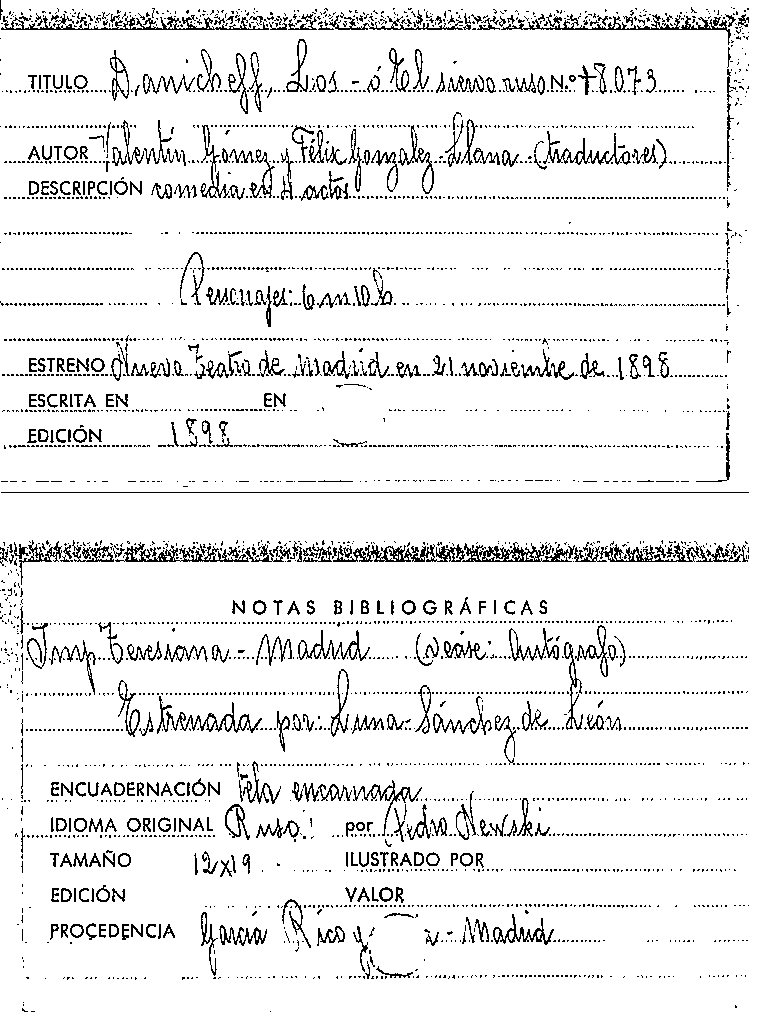 TITULO Danicheff, Los - ó El siervo ruso N.º 78.073
AUTOR Valentín Gómez y Félix Gonzalez-Llana-(traductores)
DESCRIPCIÓN comedia en 4 actos
Personajes: 6 m 10 h
ESTRENO Nuevo Teatro de Madrid en 21 noviembre de 1898
ESCRITA EN EN
EDICIÓN 1898
NOTAS BIBLIOGRÁFICAS
Imp Teresiana - Madrid (veáse: Autógrafo)
Estrenada por: Luna-Sánchez de León
ENCUADERNACIÓN tela encarnada
IDIOMA ORIGINAL Ruso! por Pedro Newski
TAMAÑO 12x19 ILUSTRADO POR
EDICIÓN VALOR
PROCEDENCIA García Rico y - Madrid